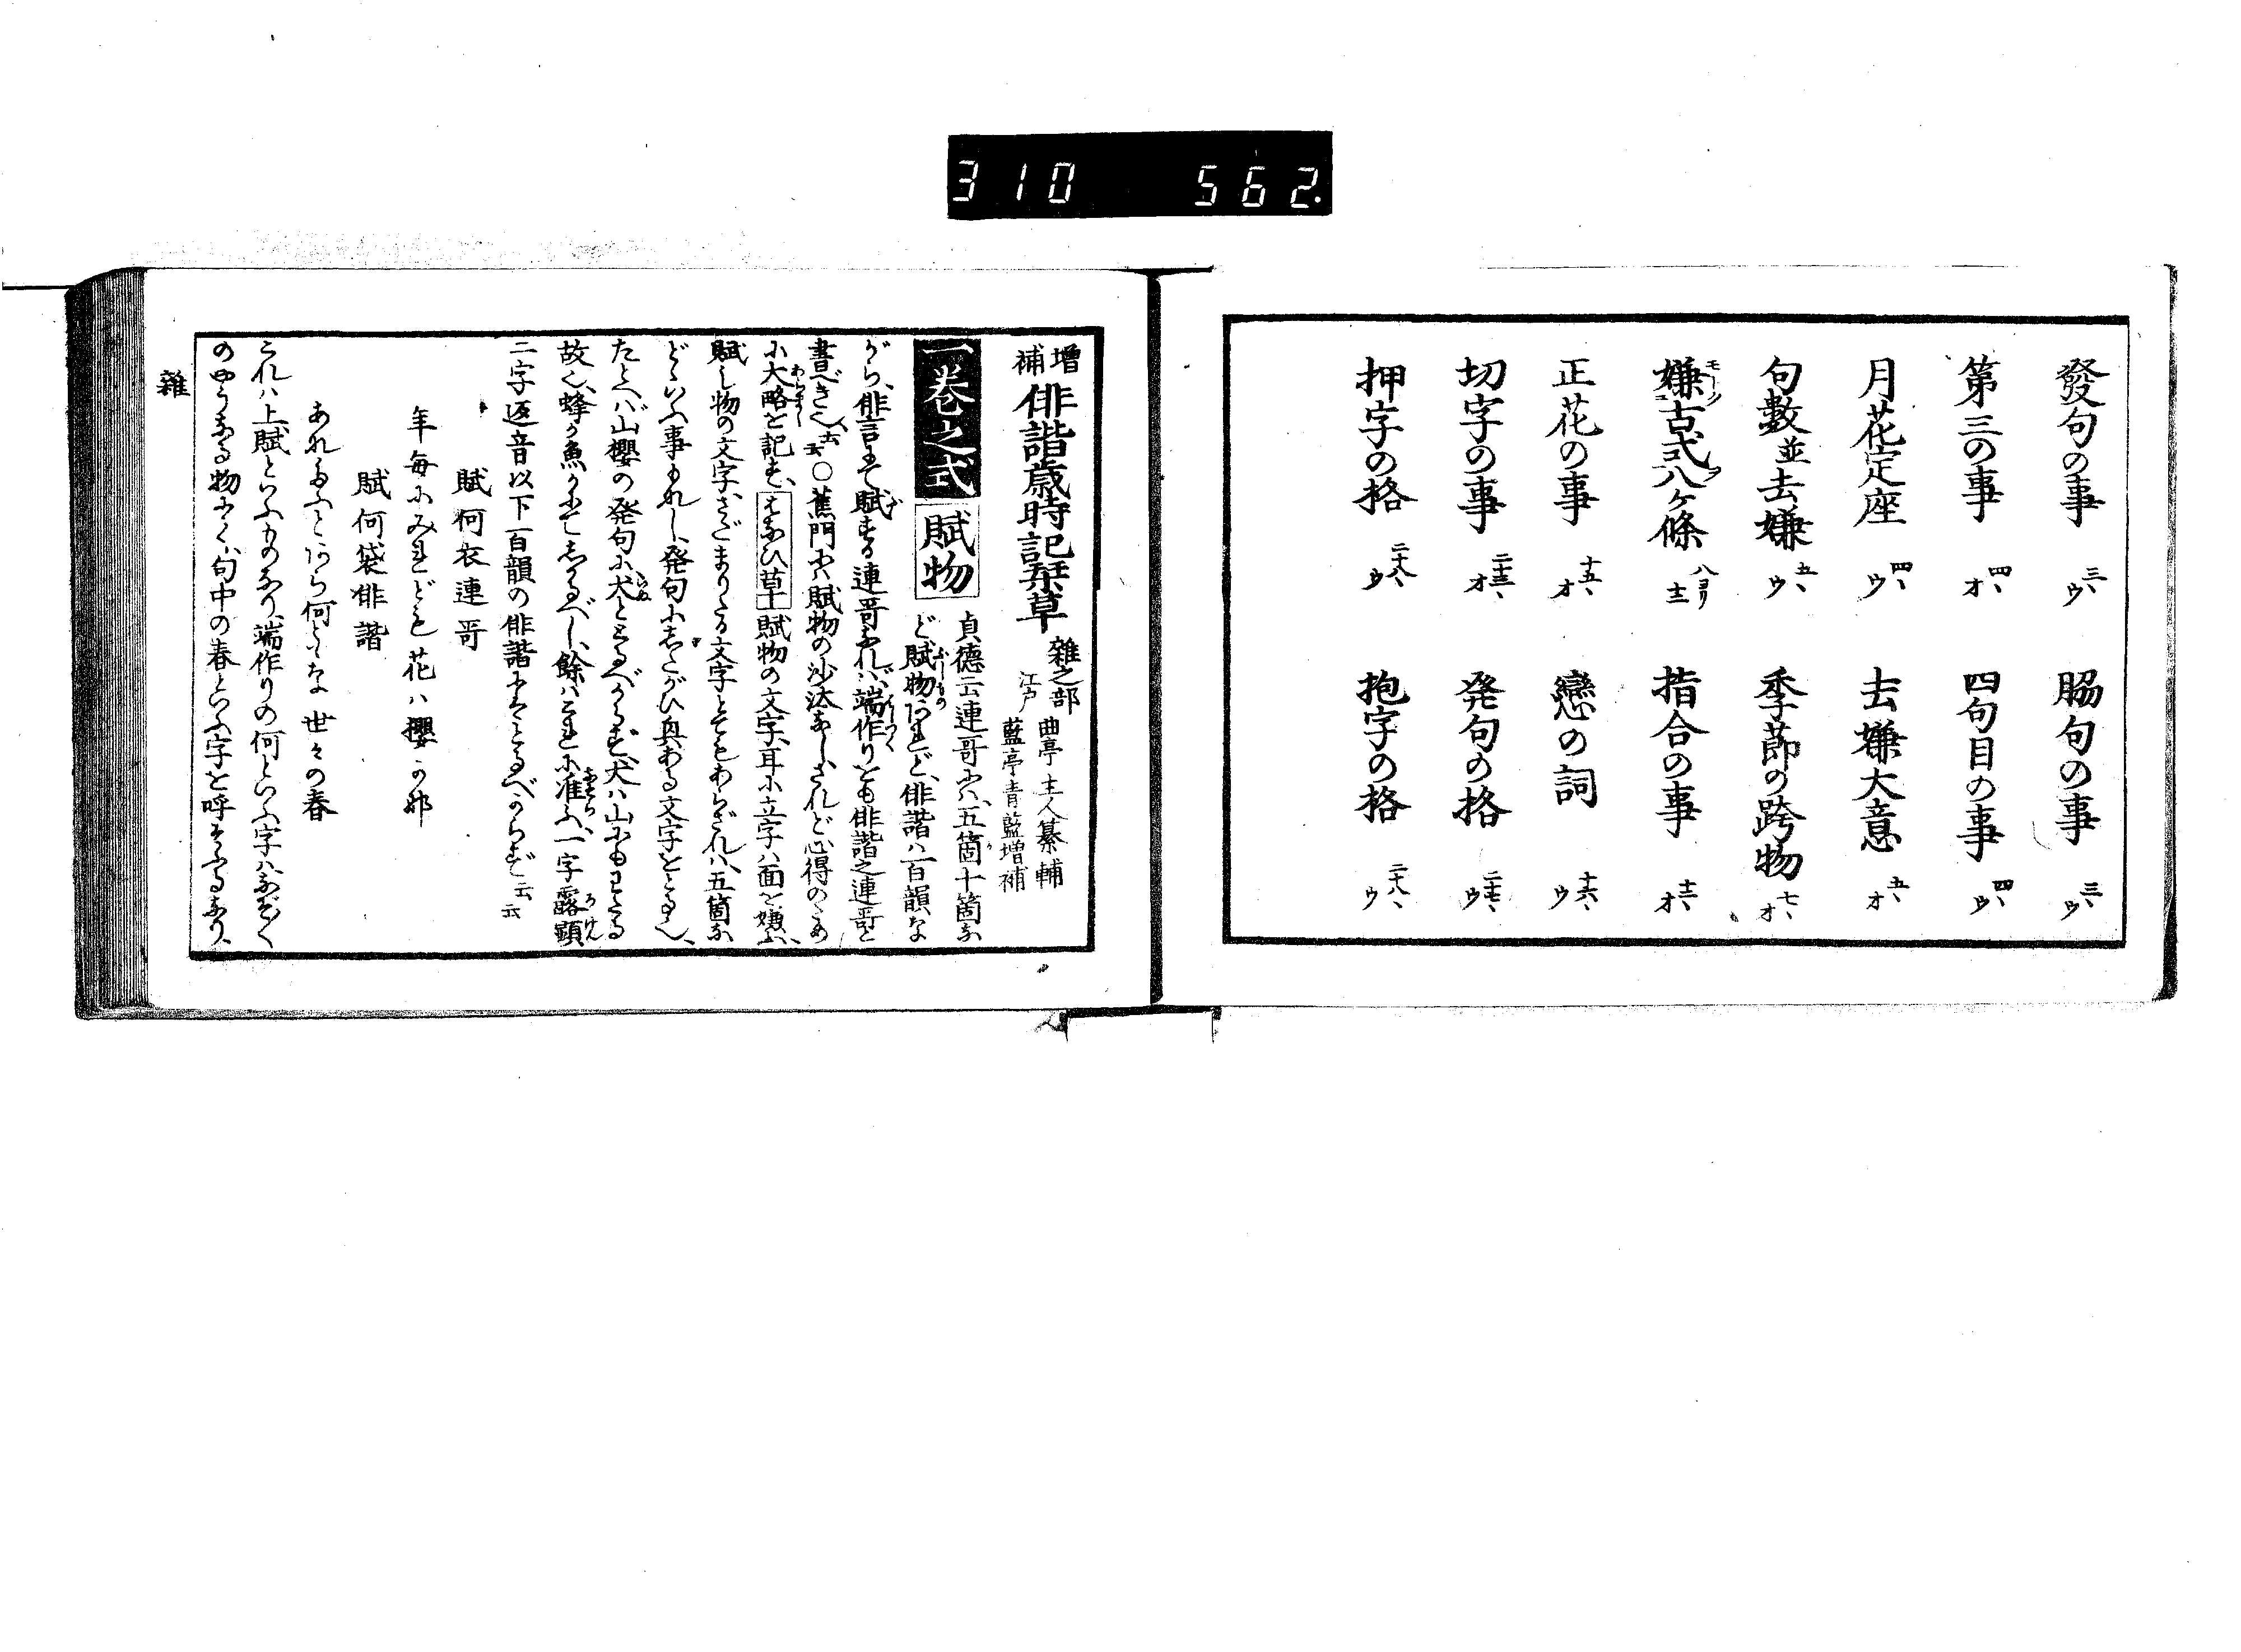 310 562.
發句の事 三ウ 脇句の事 三ウ
第三の事 四オ 四句目の事 四ウ
月花定座 四ウ 去嫌大意 五オ
句數並去嫌 五ウ 季節の跨物 七オ
嫌古式八ケ條 八ヨリ十二 指合の事 十三オ
正花の事 十五オ 戀の詞 十六ウ
切字の事 二十三オ 発句の格 二十七ウ
押字の格 二十八ウ 抱字の格 二十八ウ
增補 俳諧歳時記栞草 雜之部
江戸 曲亭主人纂輯
藍亭青藍增補
一巻之式 賦物 貞德云連哥にハ、五箇十箇な
ど賦物あれど、俳諧ハ一百韻な
がら、俳言にて賦する連哥なれバ、端作りをも俳諧之連哥と
書べき也云云 ○蕉門にハ賦物の沙汰なし、されど心得のため
に大略を記す、はなひ草 賦物の文字、耳に立字ハ面を嫌ふ、
賦し物の文字、さだまりたる文字とてもあらざれハ、五箇な
どゝいふ事もなし、発句にしたがひ奥ある文字をとる也、
たとへバ山櫻の発句に犬ととるべからず、犬ハ山にもわたる
故也、蜂ヶ魚ヶにてしるべし、餘ハこれに准ふ、一字露顕
二字返音以下一百韻の俳諧にはとるべからず云云
賦何衣連哥
年毎にみれども花ハ櫻か那
賦何袋俳諧
世々の春
これハ上賦といふものなり、端作りの何といふ字ハなぞ〳〵
のやうなる物にて、句中の春といふ字を呼そふるなり、
雜